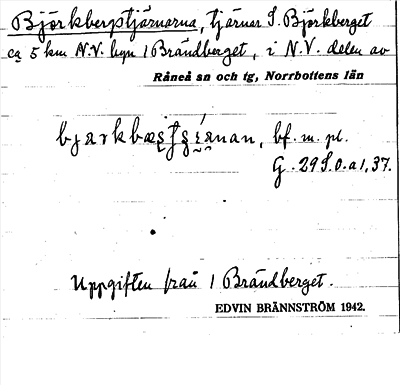 Björkbergstjärnarna, tjärnar S. Björkberget
ca 5 km N.V. byn 1 Brändberget, i N.V. delen av
Råneå sn och tg, Norrbottens län
bf. m. pl.
G. 29 S. 0. a 1, 37.
Uppgiften från 1 Brändberget.
EDVIN BRÄNNSTRÖM 1942.